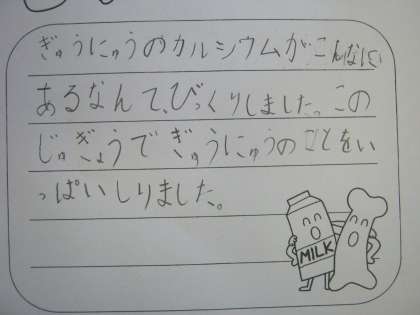 ぎゅうにゅうのカルシウムがこんなに
あるなんて、びっくりしました。この
じゅぎょうでぎゅうにゅうのことをい
っぱいしりました。
MILK